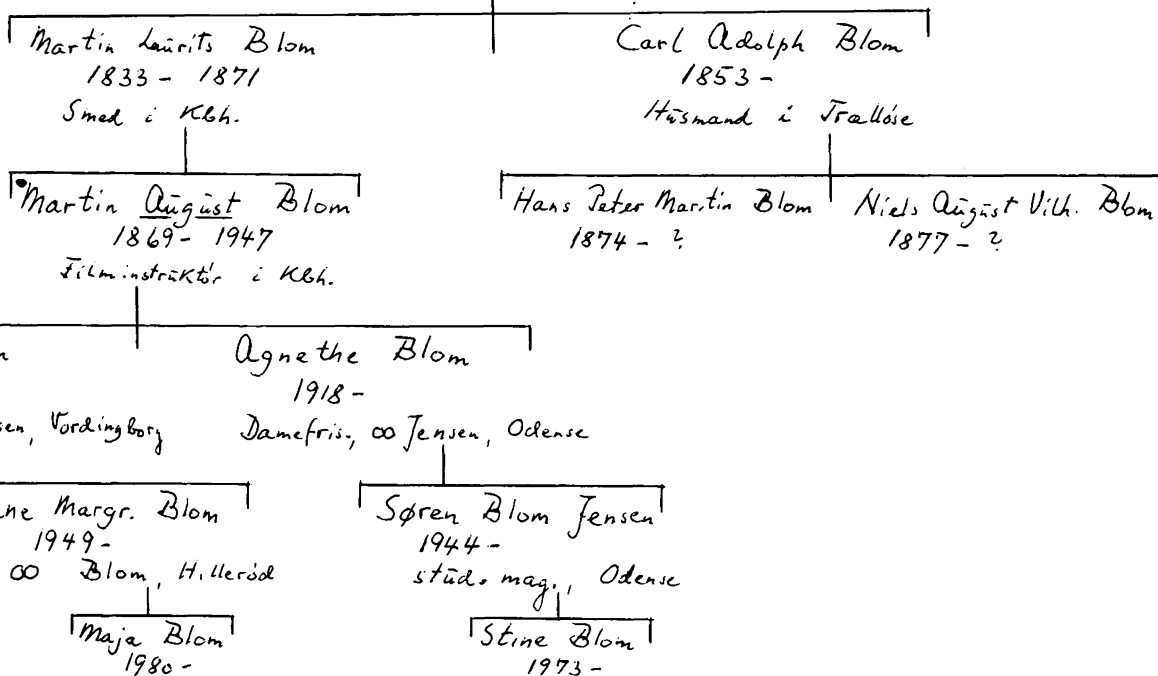 Martin Laurits Blom
1833 - 1871
Smed i Kbh.
Carl Adolph Blom
1853 -
Husmand i Trælløse
Martin August Blom
1869 - 1947
Filminstruktør i Kbh.
Hans Peter Martin Blom
1874 - ?
Niels August Vilh. Blom
1877 - ?
sen, Vordingborg
Agnethe Blom
1918 -
Damefris., ∞ Jensen, Odense
ne Margr. Blom
1949 -
∞ Blom, Hillerød
Søren Blom Jensen
1944 -
stud. mag., Odense
Maja Blom
1980 -
Stine Blom
1973 -